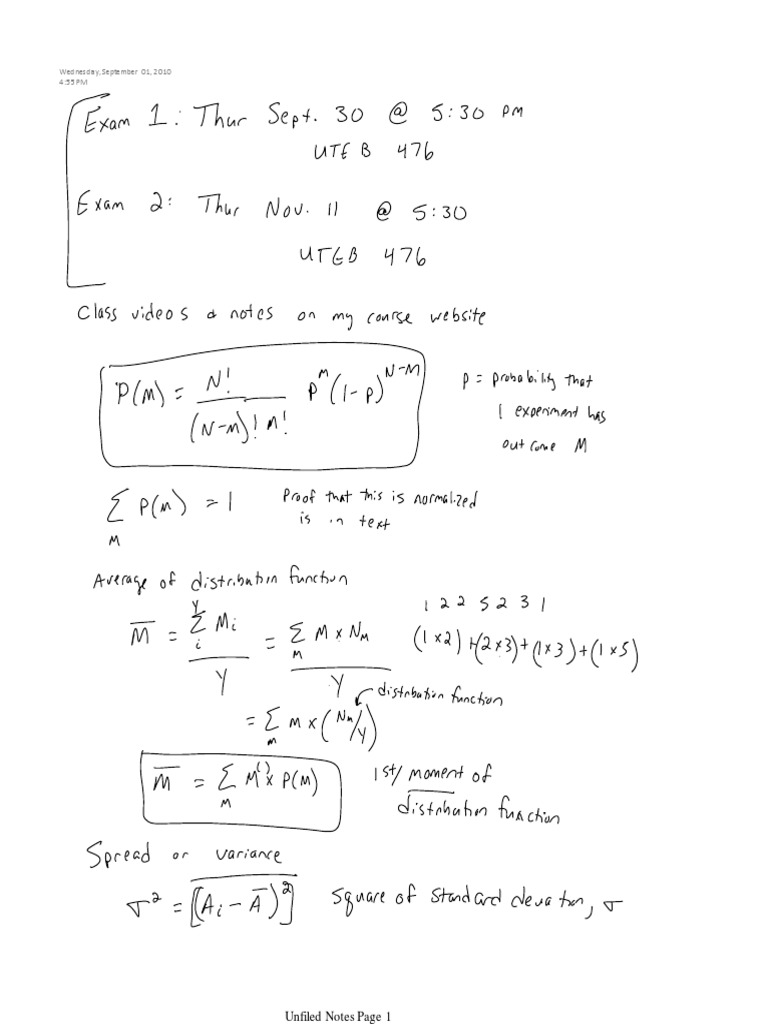 Wednesday, September 01, 2010
4:55 PM
Exam 1: Thur Sept. 30 @ 5:30 PM
UTEB 476
Exam 2: Thur Nov. 11 @ 5:30
UTEB 476
Class videos & notes on my course website
P(M) = N! / (N-M)! M! p^M (1-p)^N-M
p = probability that
1 experiment has
outcome M
∑_M P(M) = 1
Proof that this is normalized
is in text
Average of distribution function
1 2 2 5 2 3 1
M̅ = ∑_i^Y M_i / Y = ∑_M M × N_M / Y
(1×2) + (2×3) + (1×3) + (1×5)
distribution function
= ∑_M M × (N_M/Y)
M̅ = ∑_M M^(1) × P(M)
1st/ moment of
distribution function
Spread or variance
σ² = [(A_i - A̅)²]
Square of standard deviation, σ
Unfiled Notes Page 1